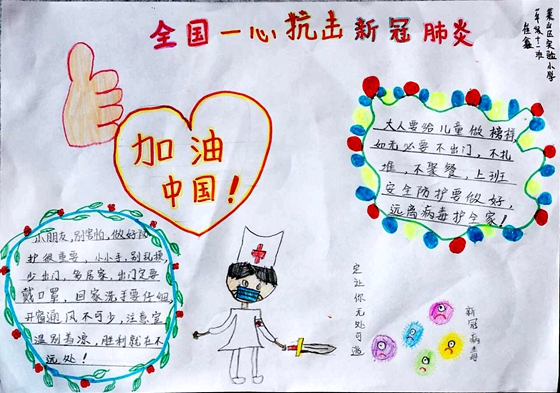 全国一心抗击新冠肺炎
莱山区实验小学
一年级十一班
崔鑫
加油
中国！
大人要给儿童做榜样，
如无必要不出门，不扎
堆，不聚餐，上班
安全防护要做好，
远离病毒护全家！
小朋友，别害怕，做好防
护很重要，小小手，别乱摸，
少出门，多居家，出门定要
戴口罩，回家洗手要仔细，
开窗通风不可少，注意室
温别着凉，胜利就在不
远处！
定让你无处可逃
新冠病毒